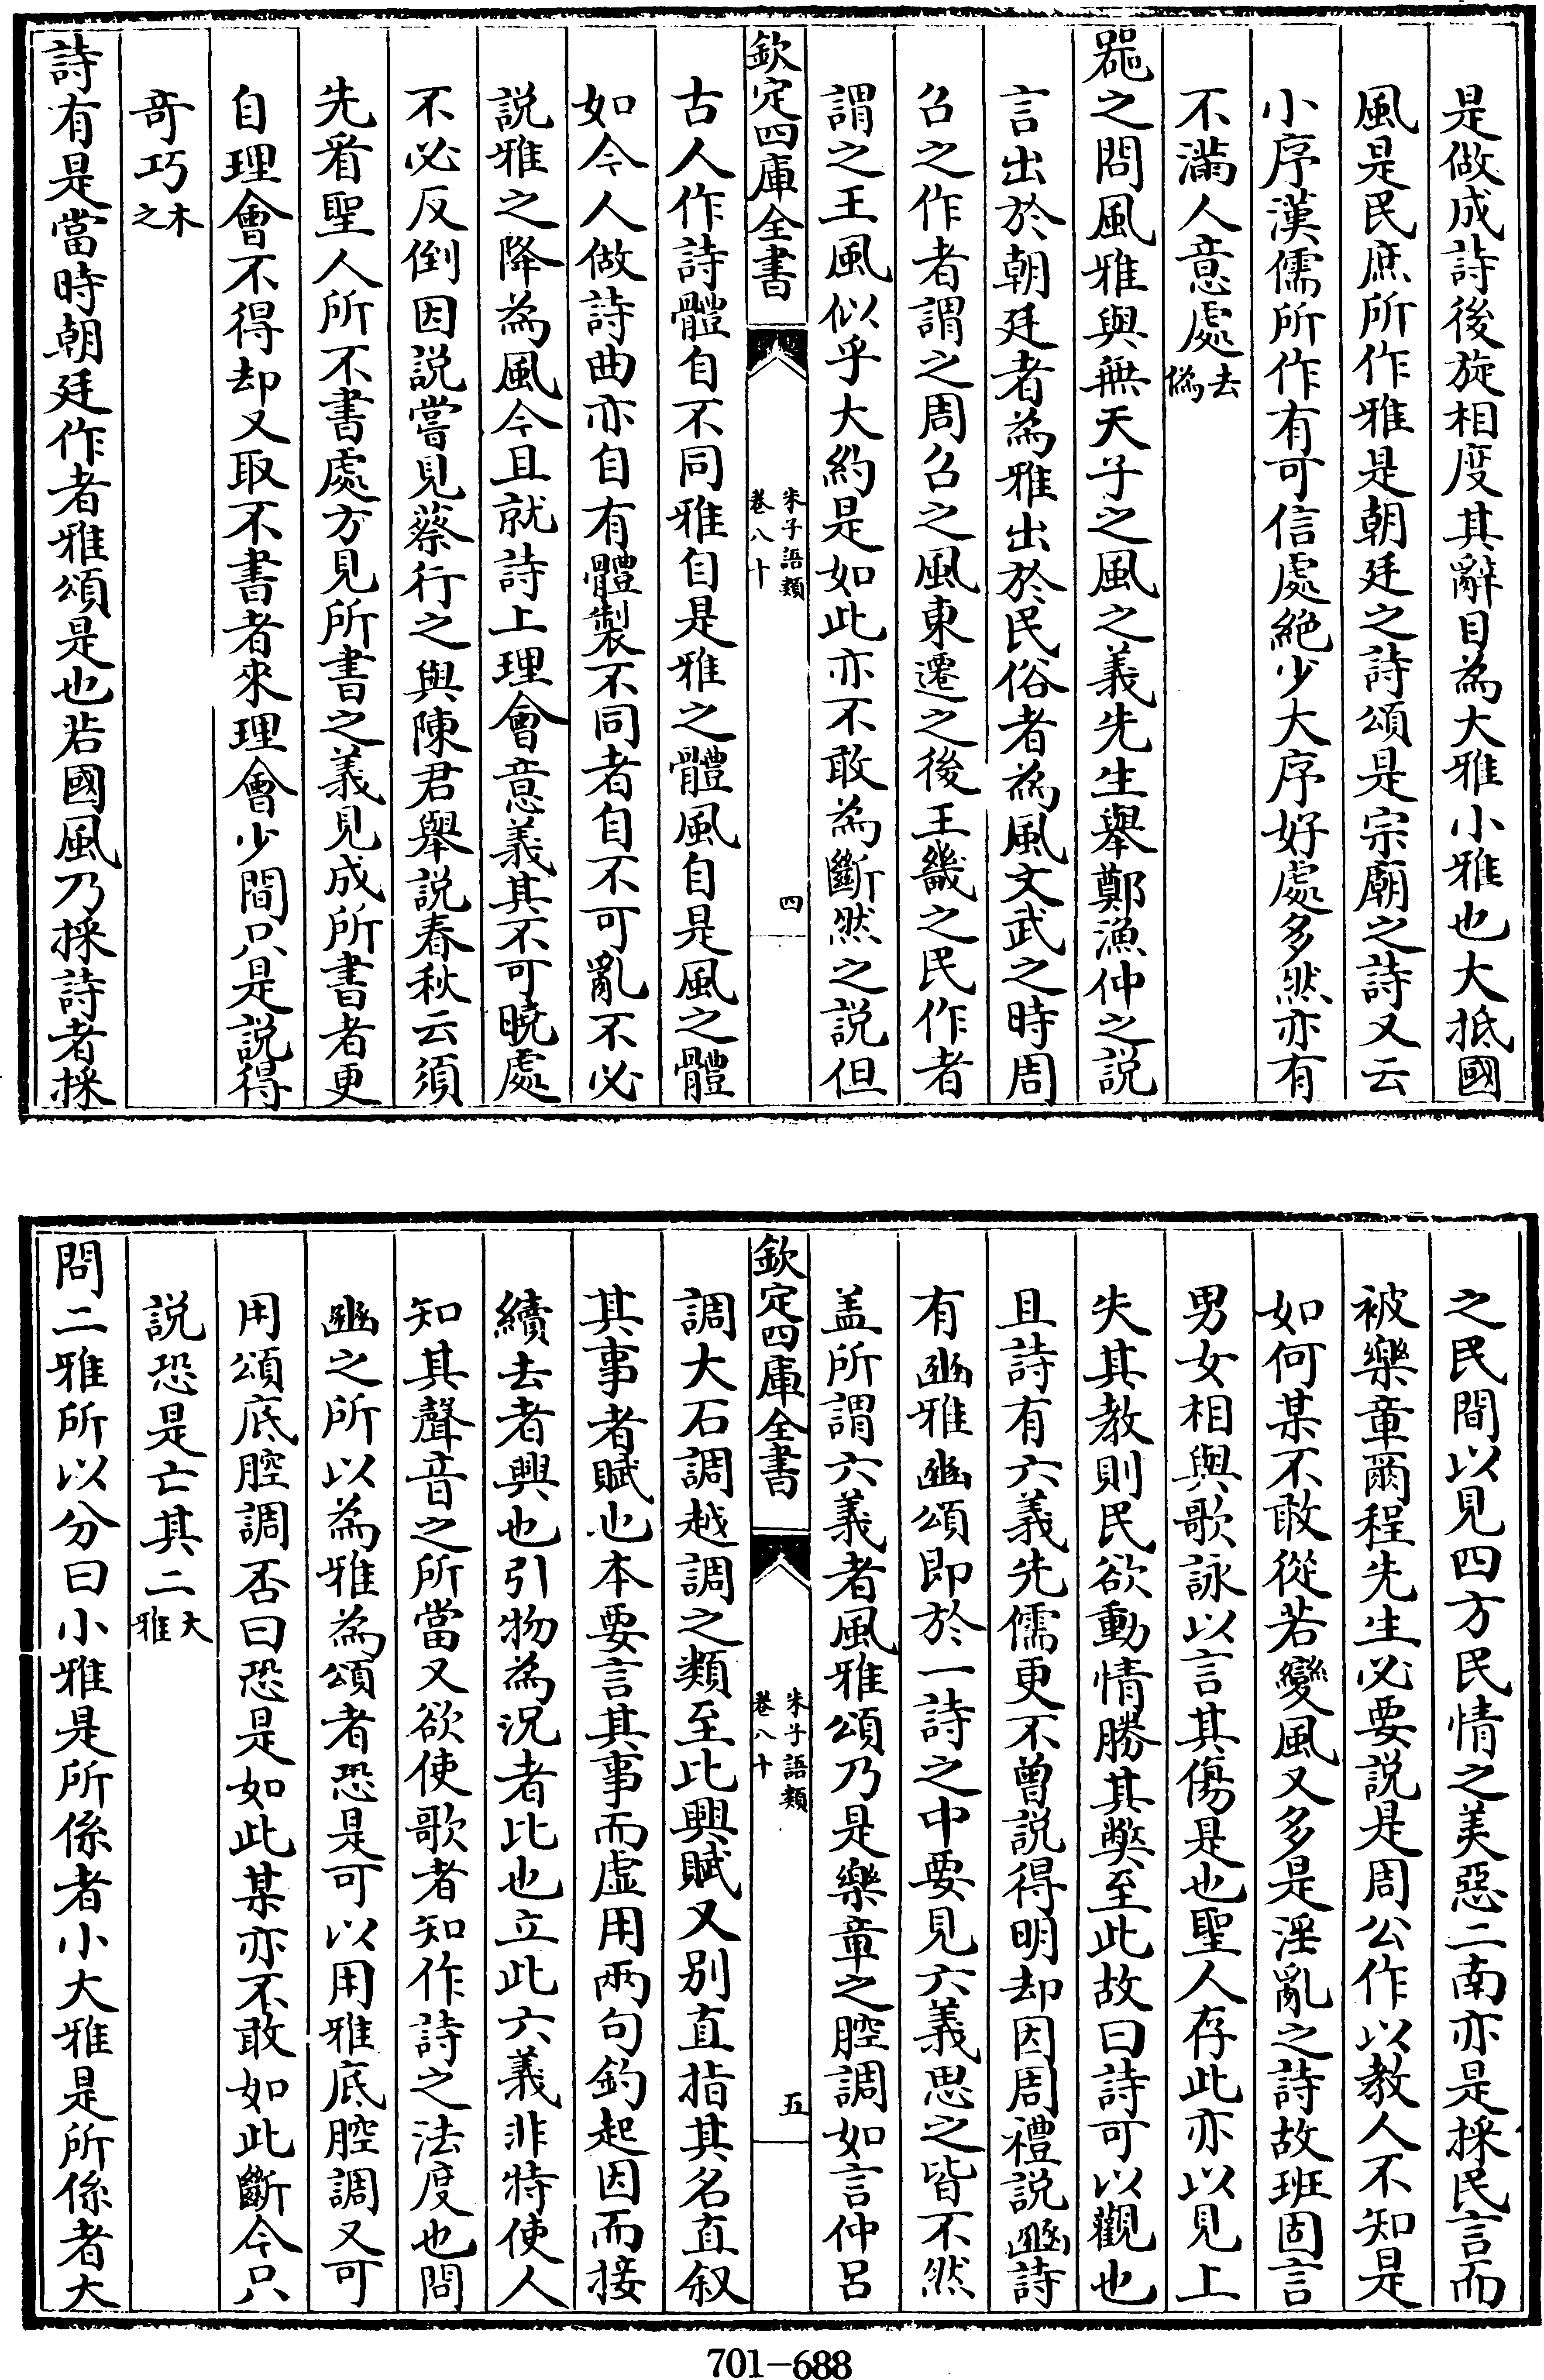 是做成詩後旋相度其辭目為大雅小雅也大抵國
風是民庶所作雅是朝廷之詩頌是宗廟之詩又云
小序漢儒所作有可信處絶少大序好處多然亦有
不滿人意處去偽
器之問風雅與無天子之風之義先生舉鄭漁仲之説
言出於朝廷者為雅出於民俗者為風文武之時周
召之作者謂之周召之風東遷之後王畿之民作者
謂之王風似乎大約是如此亦不敢為斷然之説但
欽定四庫全書 朱子語類 卷八十 四
古人作詩體自不同雅自是雅之體風自是風之體
如今人做詩曲亦自有體製不同者自不可亂不必
説雅之降為風今且就詩上理會意義其不可曉處
不必反倒因説嘗見蔡行之與陳君舉説春秋云須
先看聖人所不書處方見所書之義見成所書者更
自理會不得却又取不書者來理會少間只是説得
奇巧木之
詩有是當時朝廷作者雅頌是也若國風乃採詩者採
之民間以見四方民情之美惡二南亦是採民言而
被樂章爾程先生必要説是周公作以教人不知是
如何某不敢從若變風又多是淫亂之詩故班固言
男女相與歌詠以言其傷是也聖人存此亦以見上
失其教則民欲動情勝其弊至此故曰詩可以觀也
且詩有六義先儒更不曾説得明却因周禮説豳詩
有豳雅豳頌即於一詩之中要見六義思之皆不然
盖所謂六義者風雅頌乃是樂章之腔調如言仲呂
欽定四庫全書 朱子語類 卷八十 五
調大石調越調之類至比興賦又别直指其名直叙
其事者賦也本要言其事而虚用兩句釣起因而接
續去者興也引物為況者比也立此六義非特使人
知其聲音之所當又欲使歌者知作詩之法度也問
豳之所以為雅為頌者恐是可以用雅底腔調又可
用頌底腔調否曰恐是如此某亦不敢如此斷今只
説恐是亡其二大雅
問二雅所以分曰小雅是所係者小大雅是所係者大
701-688